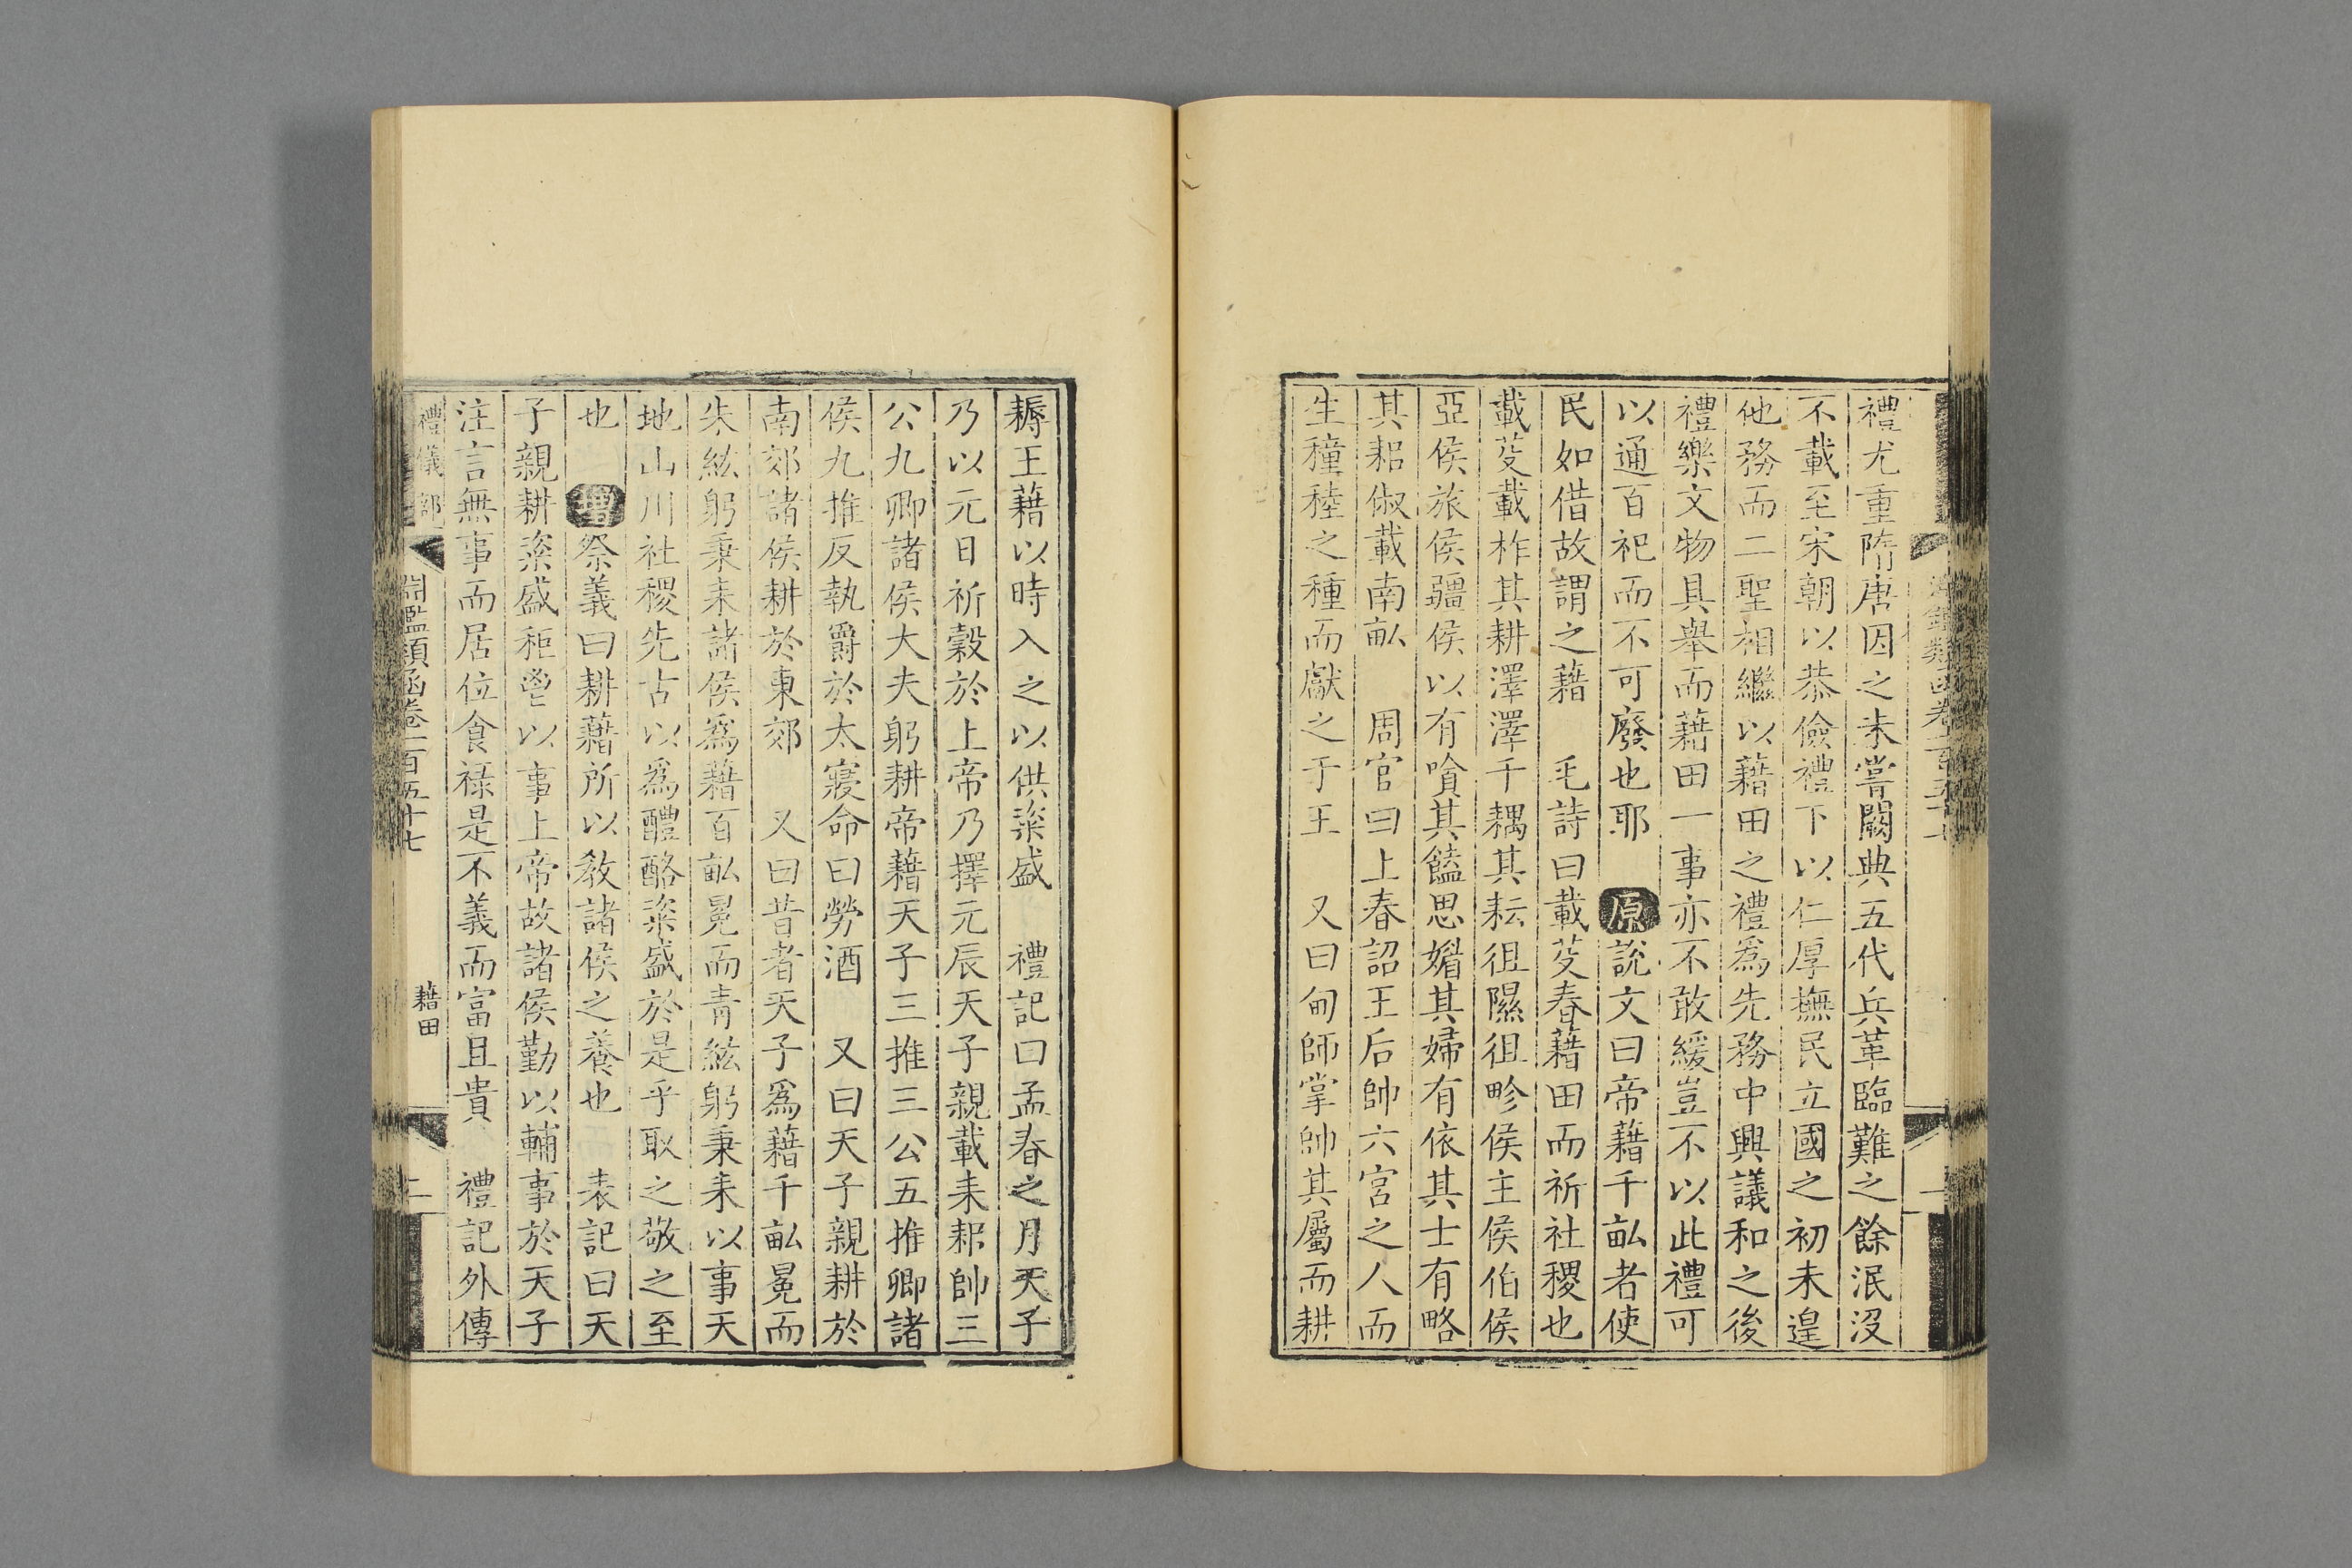 禮尤重隋唐因之未嘗闕典五代兵革臨難之餘泯沒
不載至宋朝以恭儉禮下以仁厚撫民立國之初未遑
他務而二聖相繼以藉田之禮爲先務中興議和之後
禮樂文物具舉而藉田一事亦不敢緩豈不以此禮可
以通百祀而不可廢也耶 原說文曰帝藉千畝者使
民如借故謂之藉 毛詩曰載芟春藉田而祈社稷也
載芟載柞其耕澤澤千耦其耘徂隰徂畛侯主侯伯侯
亞侯旅侯彊侯以有噲其饁思媚其婦有依其士有略
其耜俶載南畝 周官曰上春詔王后帥六宮之人而
生穜稑之種而獻之于王 又曰甸師掌帥其屬而耕
耨王藉以時入之以供粢盛 禮記曰孟春之月天子
乃以元日祈穀於上帝乃擇元辰天子親載耒耜帥三
公九卿諸侯大夫躬耕帝藉天子三推三公五推卿諸
侯九推反執爵於太寢命曰勞酒 又曰天子親耕於
南郊諸侯耕於東郊 又曰昔者天子爲藉千畝冕而
朱紘躬秉耒諸侯爲藉百畝冕而青紘躬秉耒以事天
地山川社稷先古以爲醴酪粢盛於是乎取之敬之至
也 增祭義曰耕藉所以敎諸侯之養也 表記曰天
子親耕粢盛秬鬯以事上帝故諸侯勤以輔事於天子
注言無事而居位食祿是不義而富且貴 禮記外傳
禮儀部
淵鑑類函卷一百五十七
藉田
二